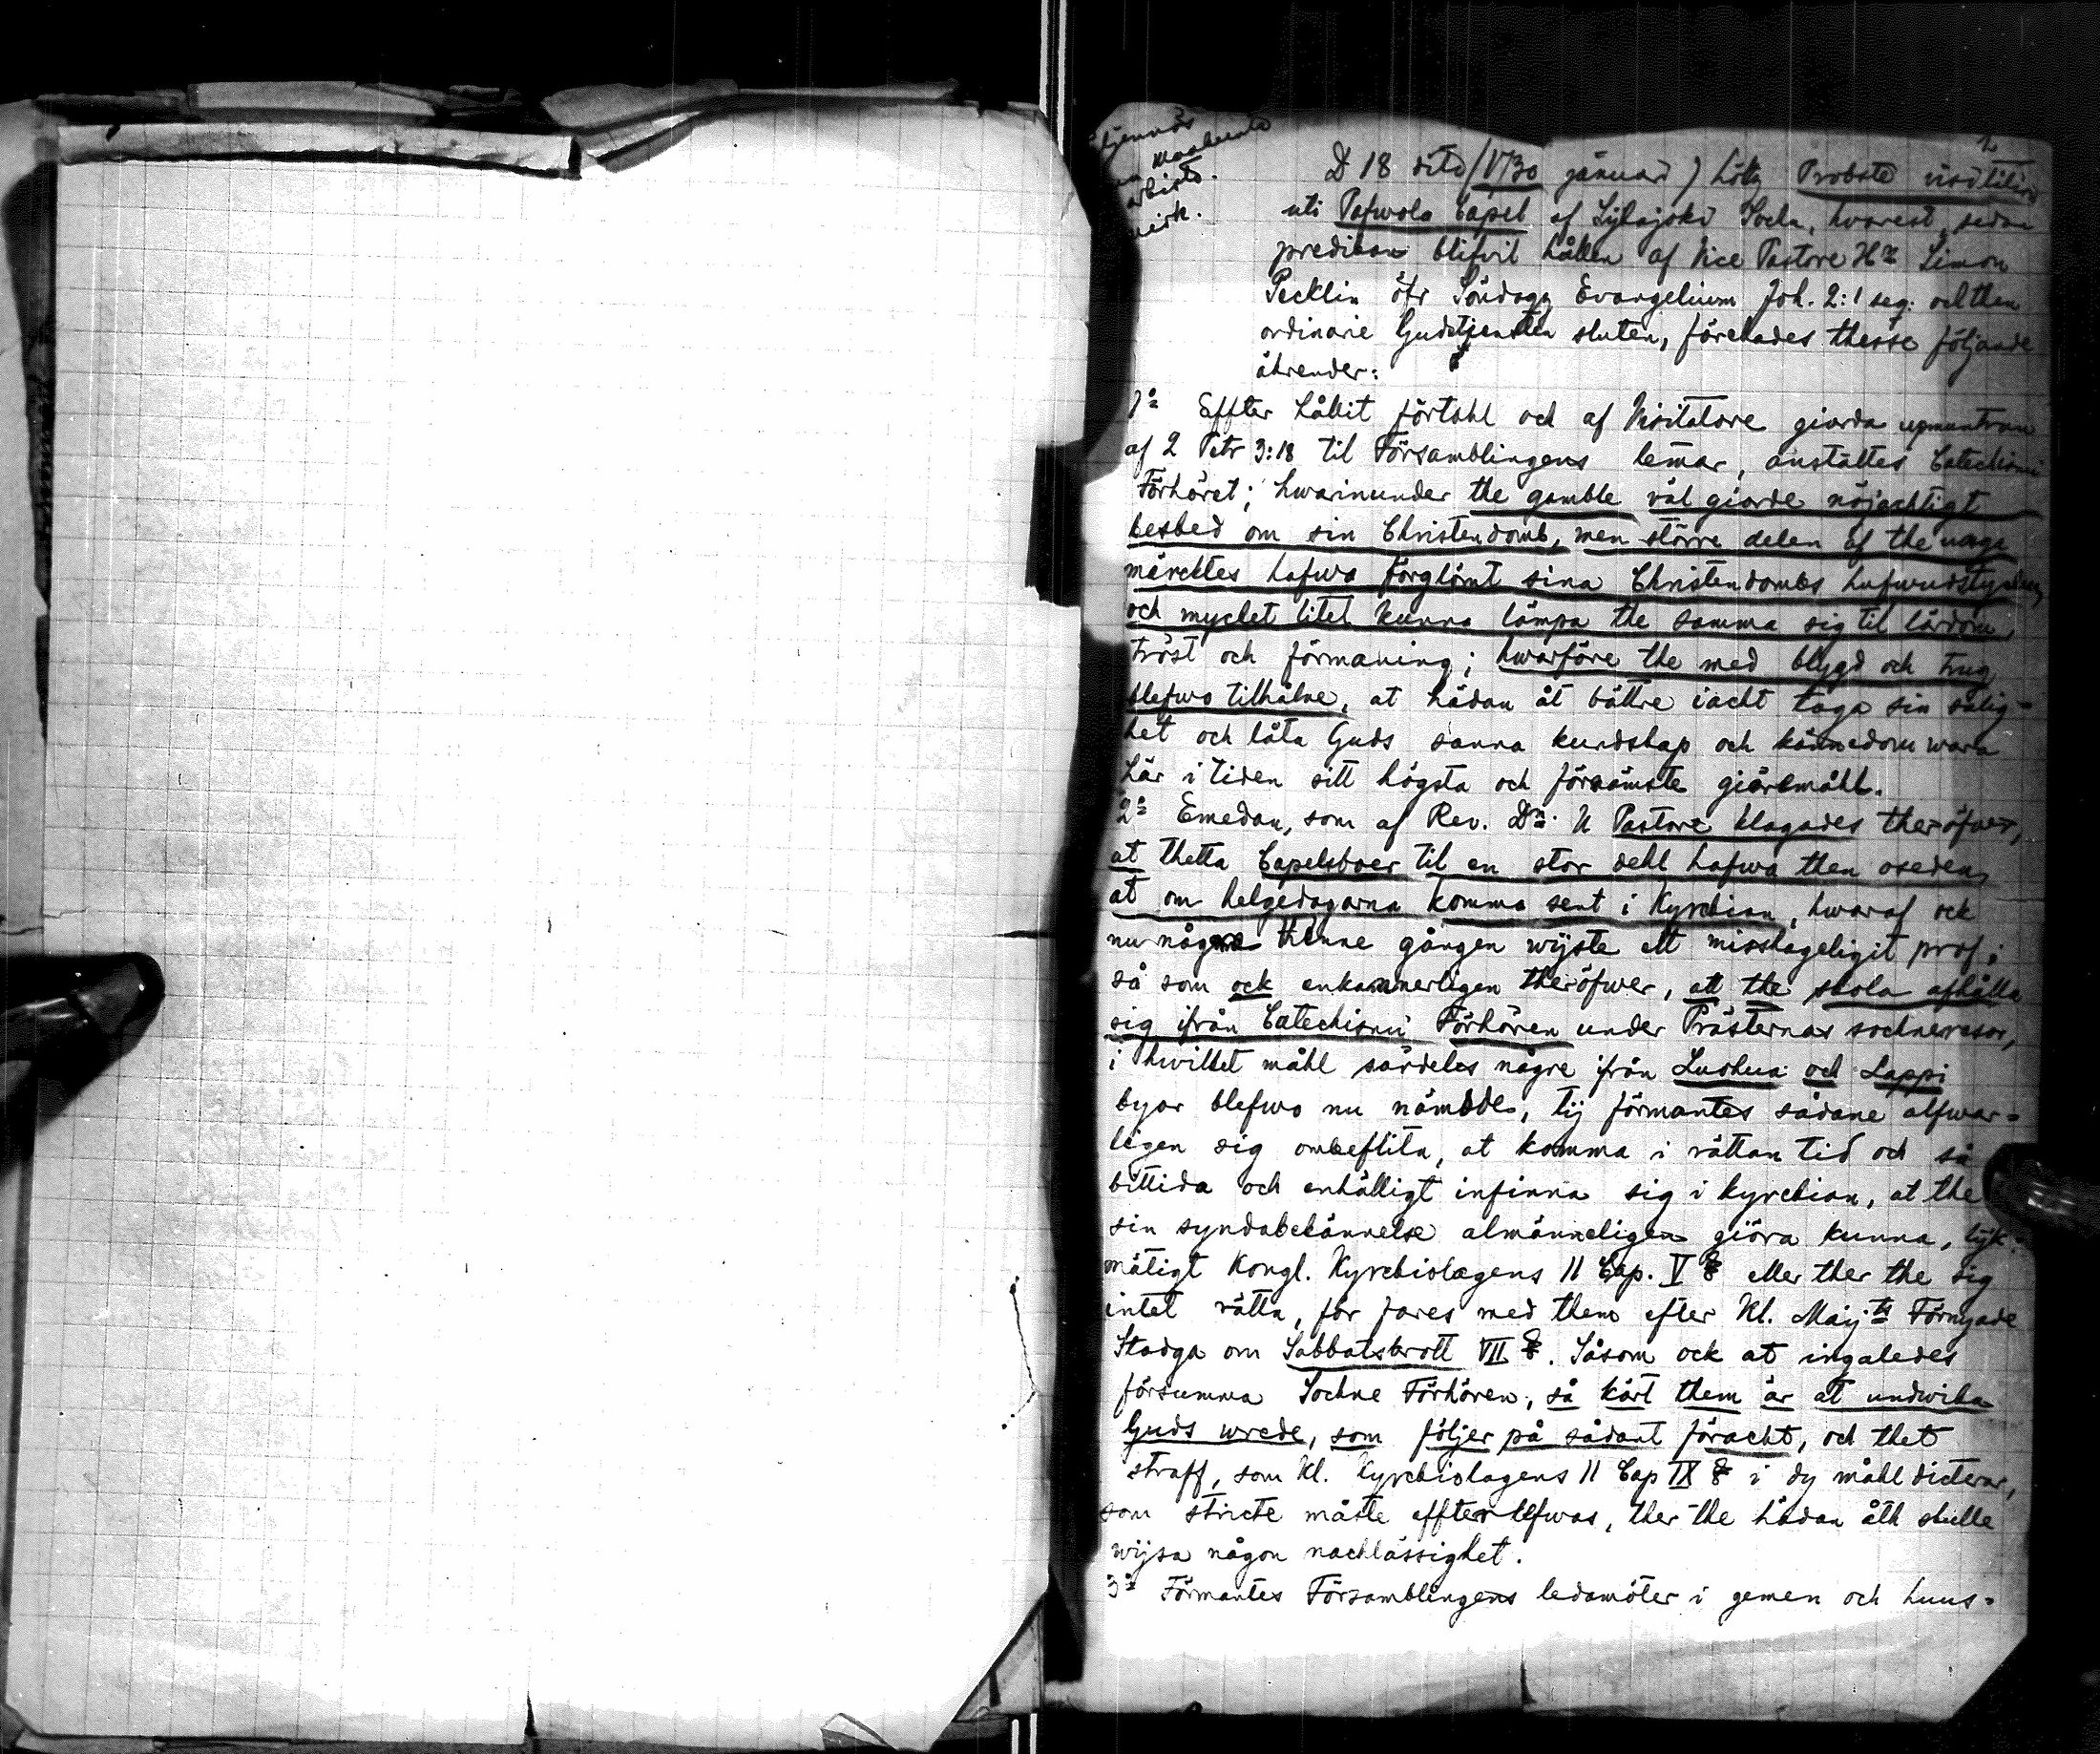 1
D 18 dito (1730 januari) hölz Probste visitation
uti Pafwola Capel af Sijkajoki Sockn, hvarest, sedan
predikan blifvit hållen af Vice Pastore Hr Simon
Pecklin öfr Söndagz Evangelium Joh. 2:1 seq. och then
ordinarie Gudztjensten sluten, förehades thesse följande
ährender:
1o Effter hållit förtahl och af Visitatore giorda upmuntran
af 2 Petr 3:18 til Församblingens lemar, anstältes Catechismi
Förhöret; hwarinunder the gamble väl giorde nöjachtigt
besked om sin Christendomb, men större delen af the unga
märcktes hafwa förglömt sina Christendombs hufwudstycken
och mycket litet kunna lämpa the samma sig til lärdom,
tröst och förmaning; hwarföre the med blygd och trug
blefwo tilhålne, at hädan åt bättre i acht taga sin salig-
het och låta Guds sanna kundskap och kännedom wara
här i tiden sitt högsta och förnämste giöremåhl.
2o Emedan, som af Rev. Dn. V Pastore klagades theröfwer,
at thetta Capelsboer til en stor dehl hafwa then oseden,
at om helgedagarna komma sent i Kyrckian, hwaraf ock
nu någre thenne gången wijste ett misshageligit prof;
så som ock enkannerligen theröfwer, att the skola afhålla
sig ifrån Catechismi Förhören under Prästernas sochneresor,
i hwilket måhl särdeles någre ifrån Luohua och Lappi
byar blefwo nu nämbde, tij förmantes sådane alfwar-
ligen sig ombeflita, at komma i rättan tid och så
bittida och enhälligt infinna sig i kyrckian, at the
sin syndabekännelse almänneligen giöra kunna, lijk-
mätigt Kongl. Kyrckiolagens II Cap. V § eller ther the sig
intet rätta, för fares med them efter Kl. Maij:ts Förnyade
Stadga om Sabbatsbrott VII §. Såsom ock at ingaledes
försumma Sochne Förhören, så kärt them är at undwika
Guds wrede, som följer på sådant föracht, och thet
straff, som Kl. Kyrckiolagens II Cap IX § i dy måhl dicterar,
som stricte måste effterlefwas, ther the hädan åth skulle
wijsa någon nachlässighet.
3o Förmantes Församblingens ledamöter i gemen och huus-